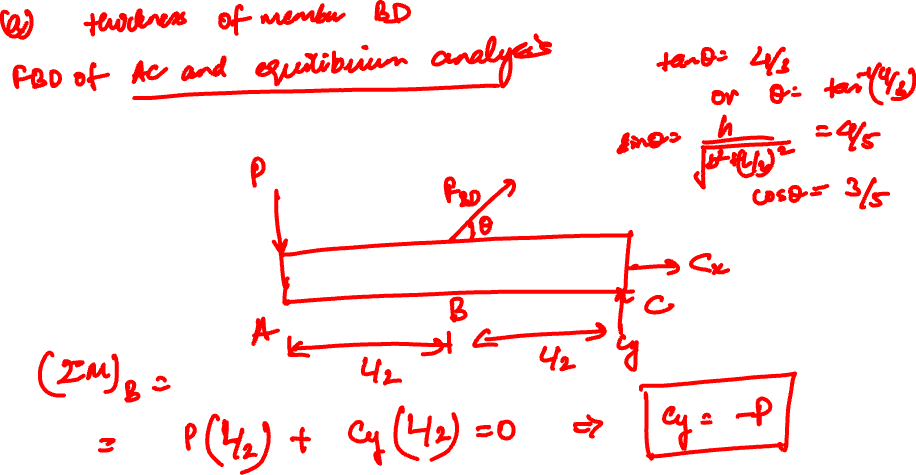 (a) thickness of member BD
FBD of AC and equilibrium analysis
tanθ = 4/3
or θ = tan⁻¹(4/3)
sinθ = h/√(h²+(L/2)²) = 4/5
cosθ = 3/5
P
F_BD
θ
C_x
A
B
C
L/2
L/2
C_y
(ΣM)_B =
= P(L/2) + C_y(L/2) = 0 ⇒ C_y = -P